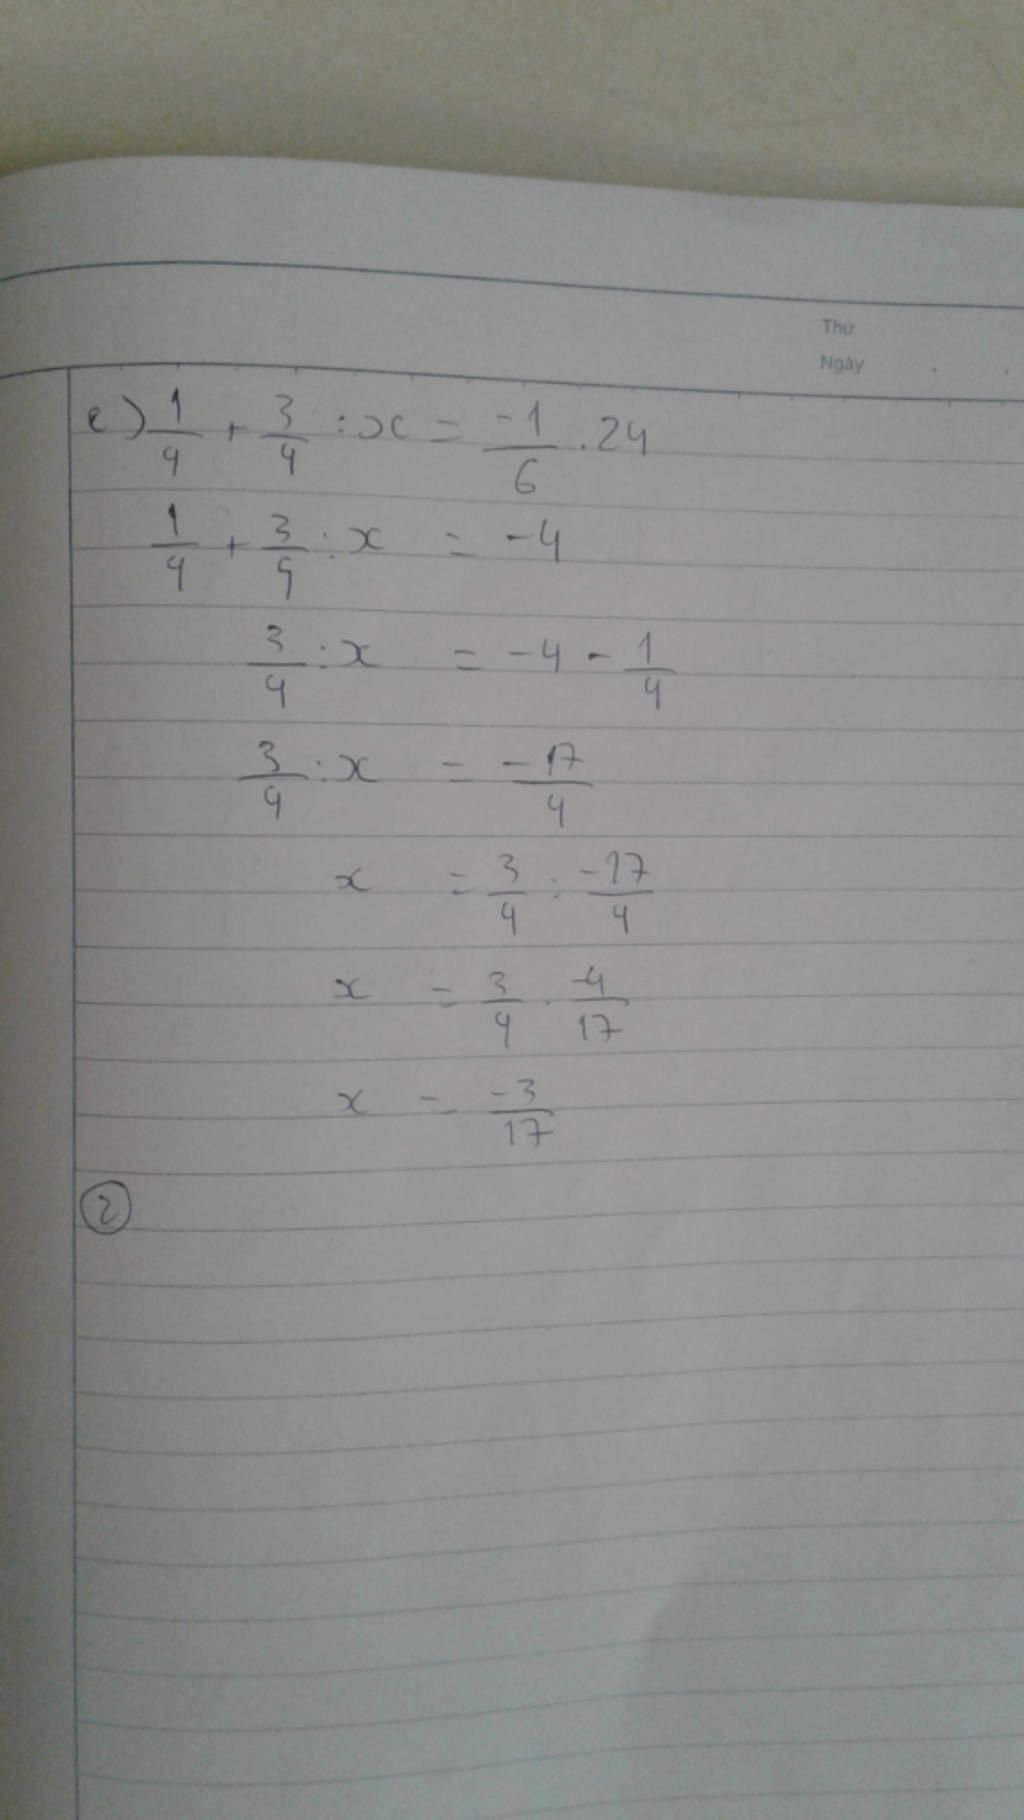 Thứ
Ngày
e) 1/4 + 3/4 : x = -1/6 . 24
1/4 + 3/4 : x = -4
3/4 : x = -4 - 1/4
3/4 : x = -17/4
x = 3/4 : -17/4
x = 3/4 . -4/17
x = -3/17
②